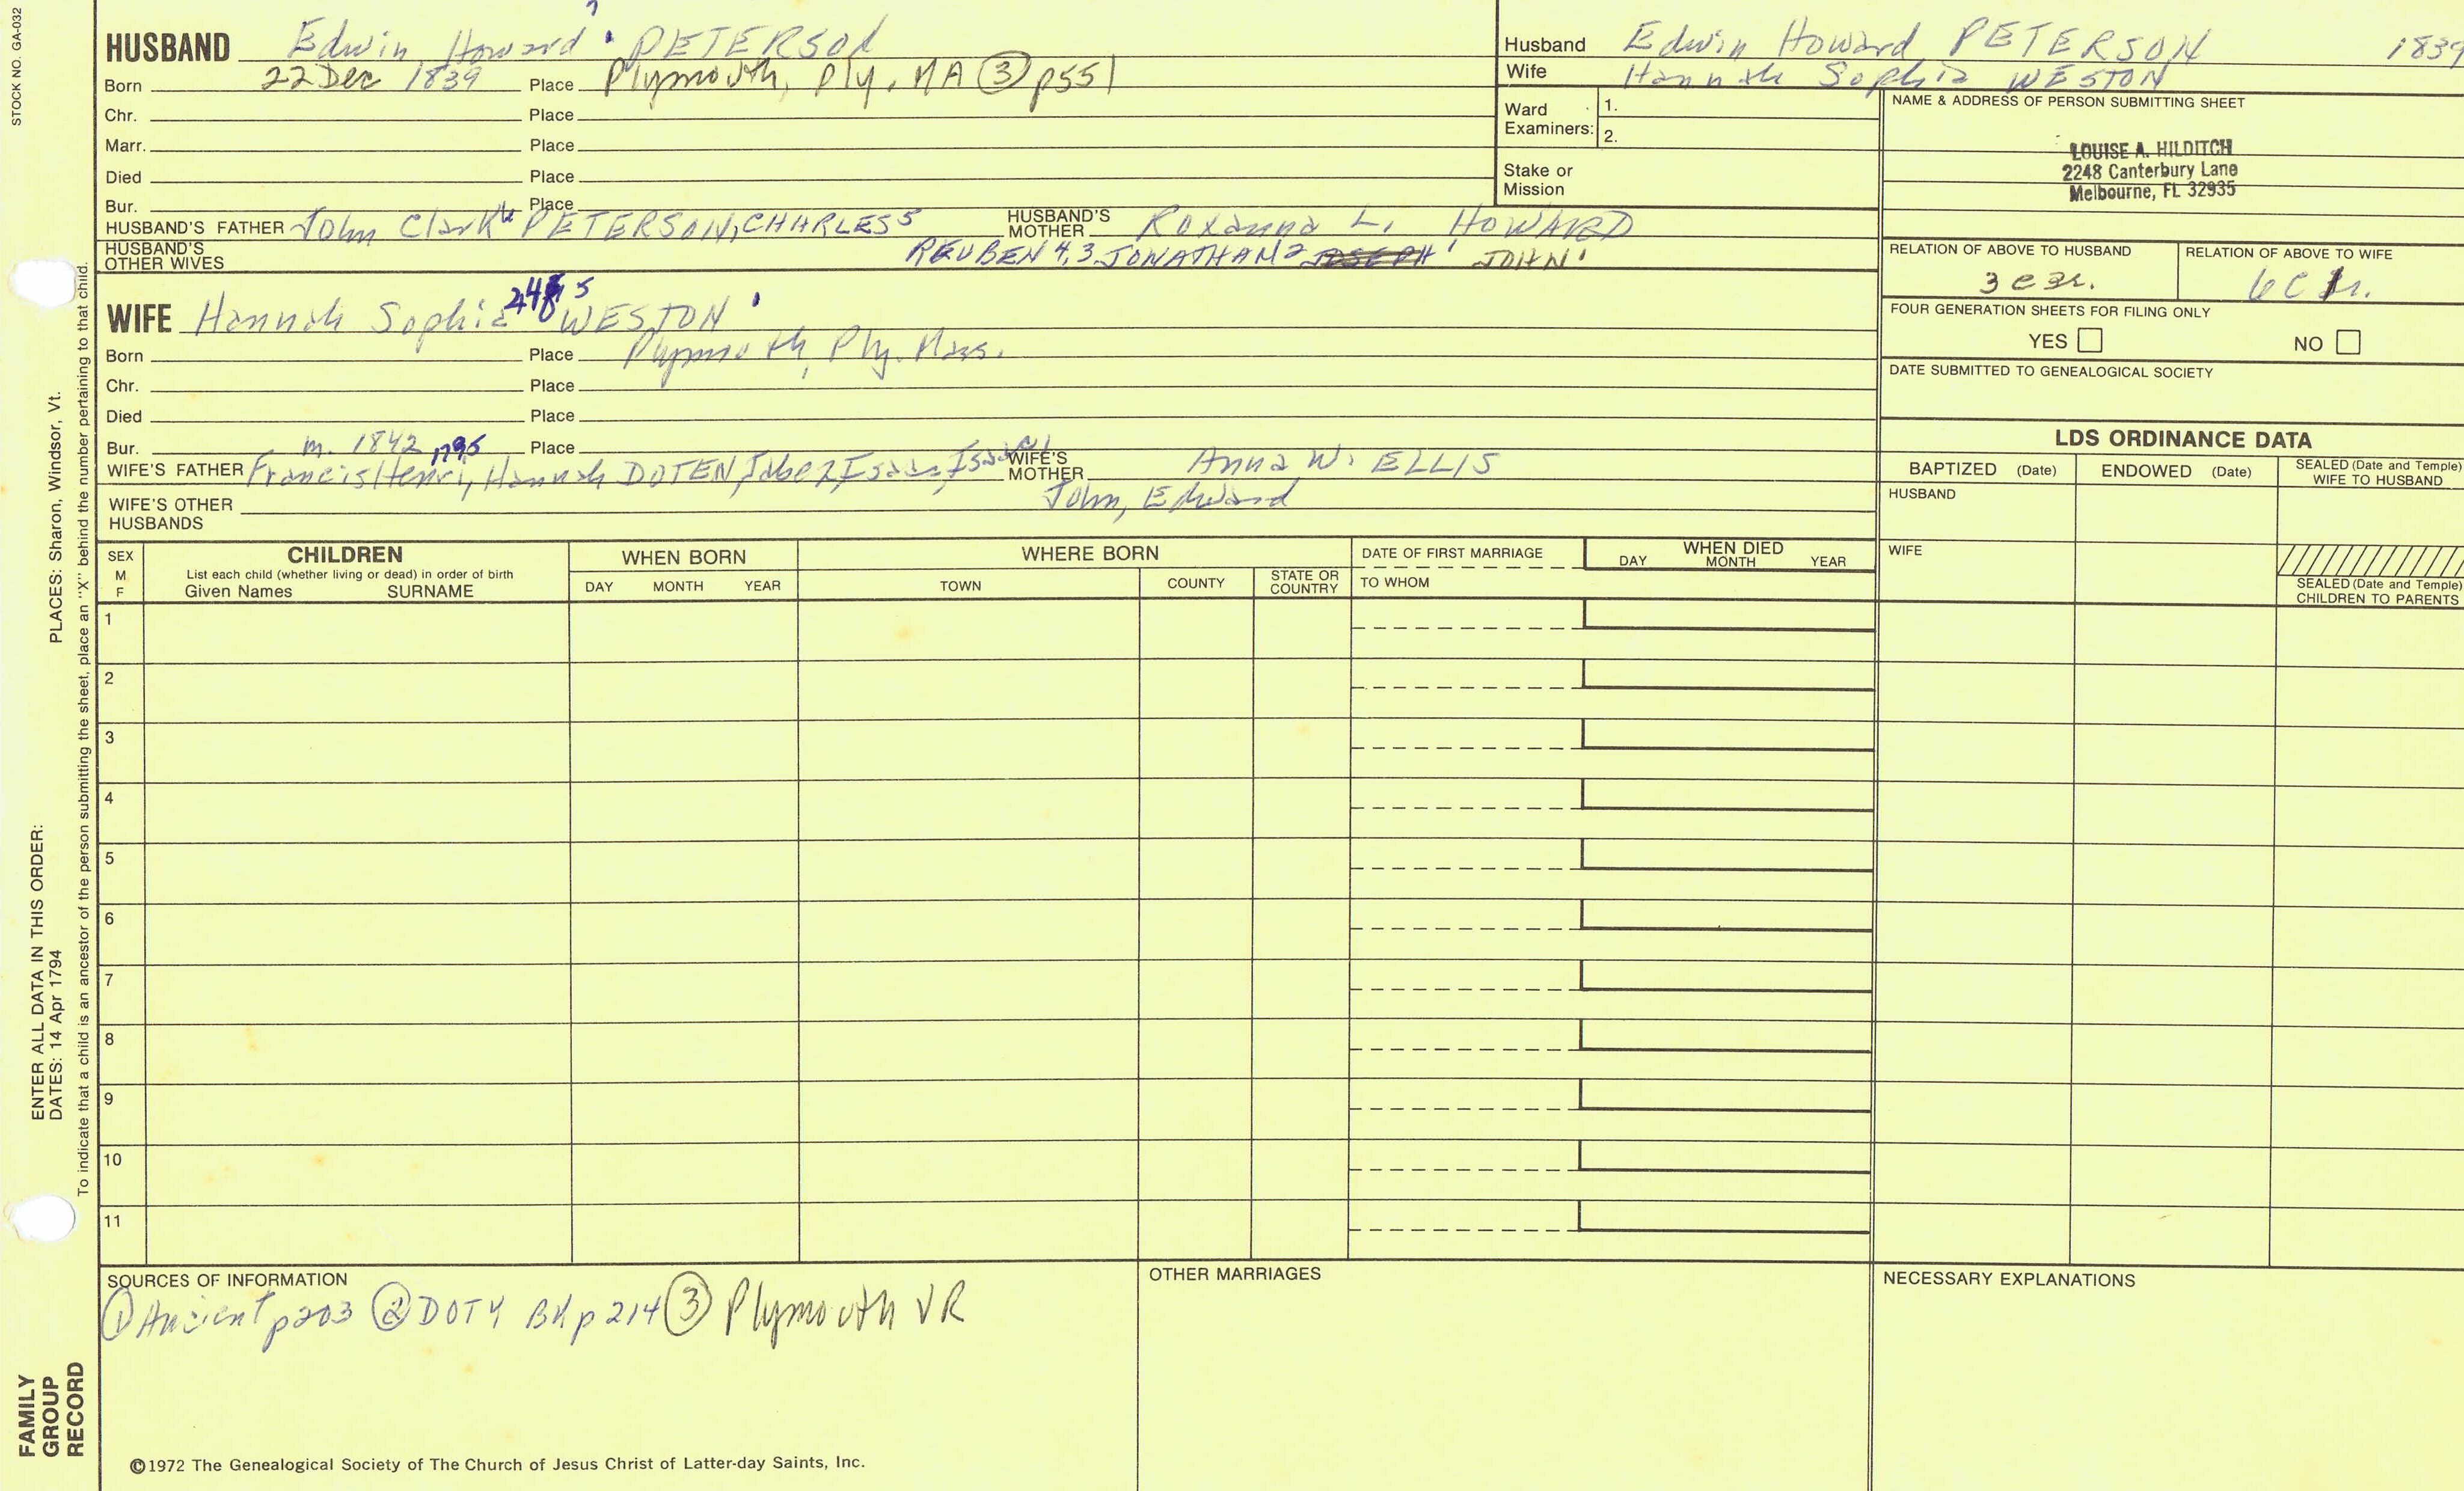 STOCK NO. GA-032
HUSBAND Edwin Howard PETERSON
Born 22 Dec 1839 Place Plymouth, Ply. MA ③ p551
Chr. Place
Marr. Place
Died Place
Bur. Place
HUSBAND'S FATHER John Clark PETERSON, CHARLES 5 HUSBAND'S MOTHER Roxanna L. HOWARD
HUSBAND'S OTHER WIVES REUBEN 4,3 JONATHAN 2 JOSEPH 1 JOHN 1
WIFE Hannah Sophia WESTON
Born Place Plymouth, Ply. Mass.
Chr. Place
Died Place
Bur. m. 1842 Place
WIFE'S FATHER Francis Henri, Hannah DOTEN, Jabez, Isaac, Isaac WIFE'S MOTHER Anna W. ELLIS
John, Edward
WIFE'S OTHER HUSBANDS
Husband Edwin Howard PETERSON 1839
Wife Hannah Sophia WESTON
Ward Examiners: 1.
2.
Stake or Mission
NAME & ADDRESS OF PERSON SUBMITTING SHEET
LOUISE A. HILDITCH
2248 Canterbury Lane
Melbourne, FL 32935
RELATION OF ABOVE TO HUSBAND RELATION OF ABOVE TO WIFE
FOUR GENERATION SHEETS FOR FILING ONLY
YES NO
DATE SUBMITTED TO GENEALOGICAL SOCIETY
LDS ORDINANCE DATA
BAPTIZED (Date) ENDOWED (Date) SEALED (Date and Temple) WIFE TO HUSBAND
HUSBAND
WIFE
SEALED (Date and Temple) CHILDREN TO PARENTS
SEX M F
CHILDREN
List each child (whether living or dead) in order of birth
Given Names SURNAME
WHEN BORN
DAY MONTH YEAR
WHERE BORN
TOWN COUNTY STATE OR COUNTRY
DATE OF FIRST MARRIAGE
TO WHOM
WHEN DIED
DAY MONTH YEAR
1
2
3
4
5
6
7
8
9
10
11
SOURCES OF INFORMATION
① Ancient p203 ② DOTY Bk p 214 ③ Plymouth VR
OTHER MARRIAGES
NECESSARY EXPLANATIONS
©1972 The Genealogical Society of The Church of Jesus Christ of Latter-day Saints, Inc.
FAMILY GROUP RECORD
ENTER ALL DATA IN THIS ORDER:
DATES: 14 Apr 1794 PLACES: Sharon, Windsor, Vt.
To indicate that a child is an ancestor of the person submitting the sheet, place an "X" behind the number pertaining to that child.